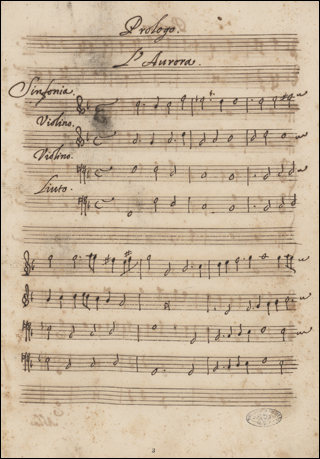 Prologo.
L'Aurora.
Sinfonia.
Violino.
Violino.
Liuto.
2